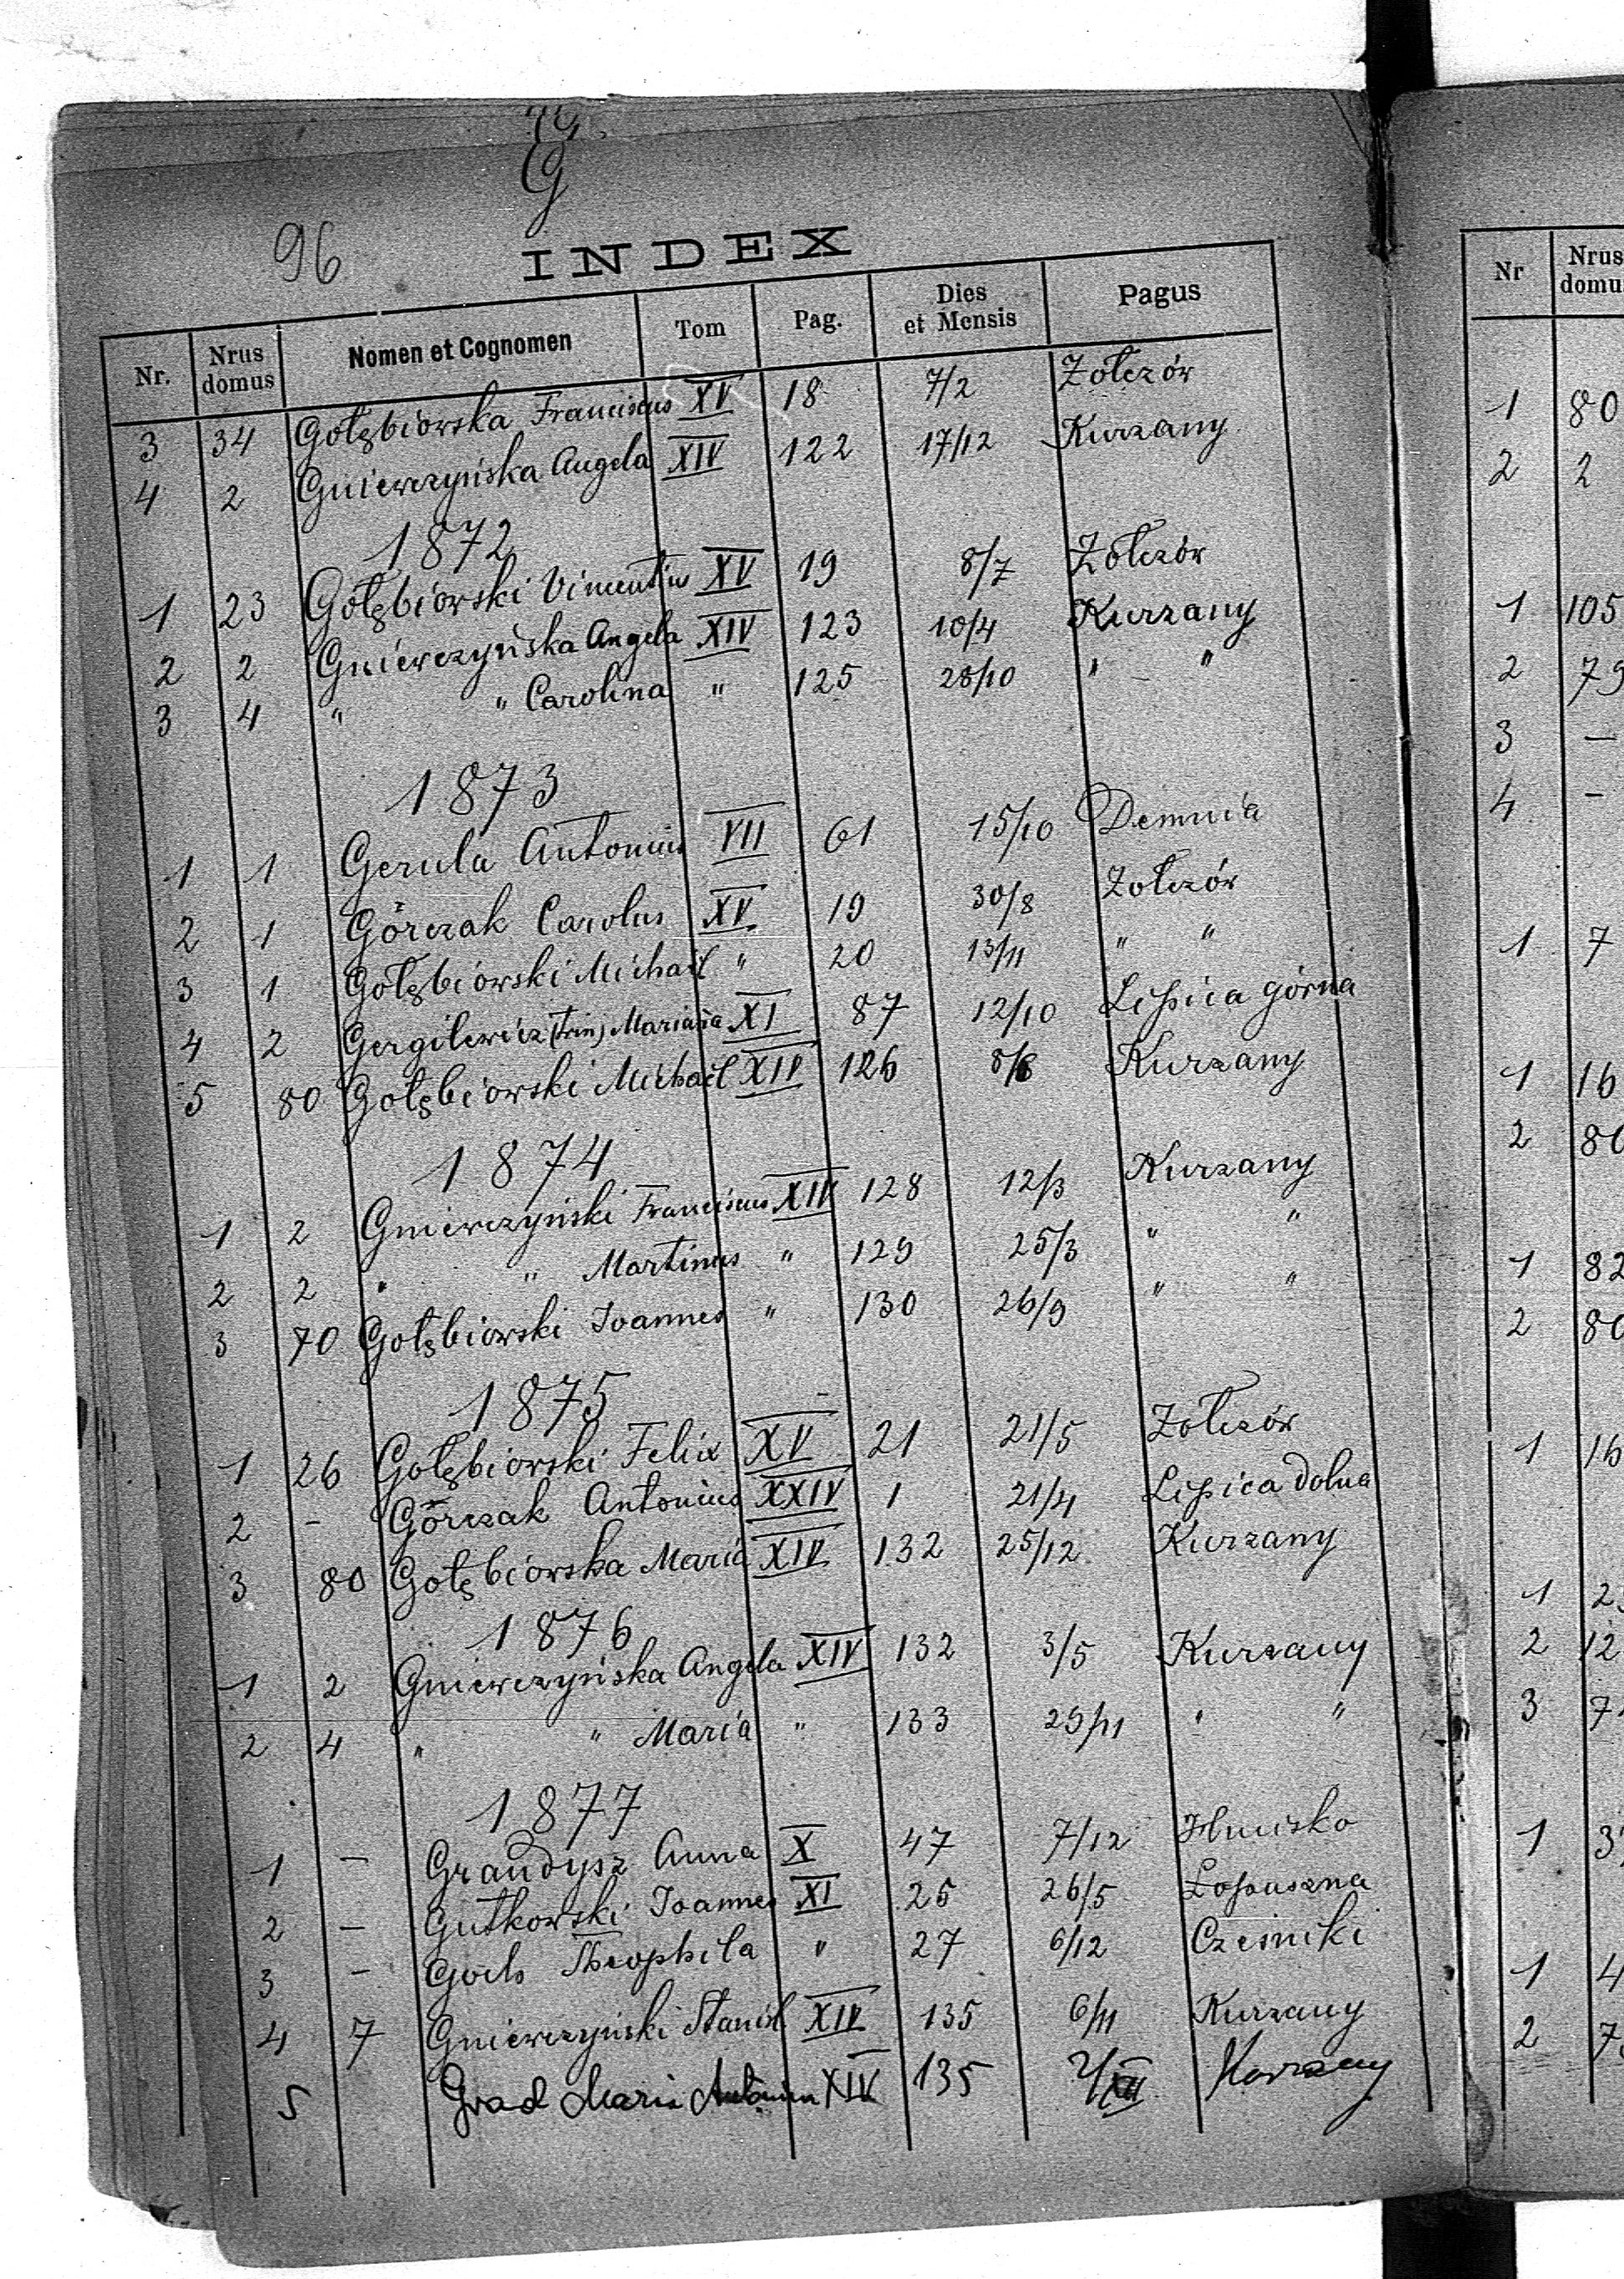 G
96
INDEX
Nr. Nrus domus Nomen et Cognomen Tom Pag. Dies et Mensis Pagus
3 34 Gołębiowska Franciscus XV 18 7/2 Żołczów
4 2 Gniewczyńska Angela XIV 122 17/12 Kurzany
1872
1 23 Gołębiowski Vincentius XV 19 8/7 Żołczów
2 2 Gniewczyńska Angela XIV 123 10/4 Kurzany
3 4 " " Carolina " 125 28/10 " "
1873
1 1 Gerula Antonius VII 61 15/10 Demnia
2 1 Górczak Carolus XV 19 30/8 Żołczów
3 1 Gołębiowski Michael " 20 13/11 " "
4 2 Gergilewicz (Trin) Marianna XI 87 12/10 Lipica górna
5 80 Gołębiowski Michael XIV 126 8/8 Kurzany
1874
1 2 Gniewczyński Franciscus XIV 128 12/3 Kurzany
2 2 " " Martinus " 129 25/3 " "
3 70 Gołębiowski Joannes " 130 26/9 " "
1875
1 26 Gołębiowski Felix XV 21 21/5 Żołczów
2 – Górczak Antonius XXIV 1 21/4 Lipica dolna
3 80 Gołębiowska Maria XIV 132 25/12 Kurzany
1876
1 2 Gniewczyńska Angela XIV 132 3/5 Kurzany
2 4 " " Maria " 133 29/11 " "
1877
1 – Grandysz Anna X 47 7/12 Hnizko
2 – Gutkowski Joannes XI 25 26/5 Łopuszna
3 – Theophila " 27 6/12 Czesniki
4 7 Gniewczyński Stanisł XIV 135 6/11 Kurzany
5 Grad Maria Antonina XIV 135 2/XII Kurzany
Nr Nrus domu
1 80
2 2
1 105
2 79
3 –
4 –
1 7
1 16
2 80
1 82
2 80
1 16
1 2
2 12
3 7
1 3
1 4
2 7